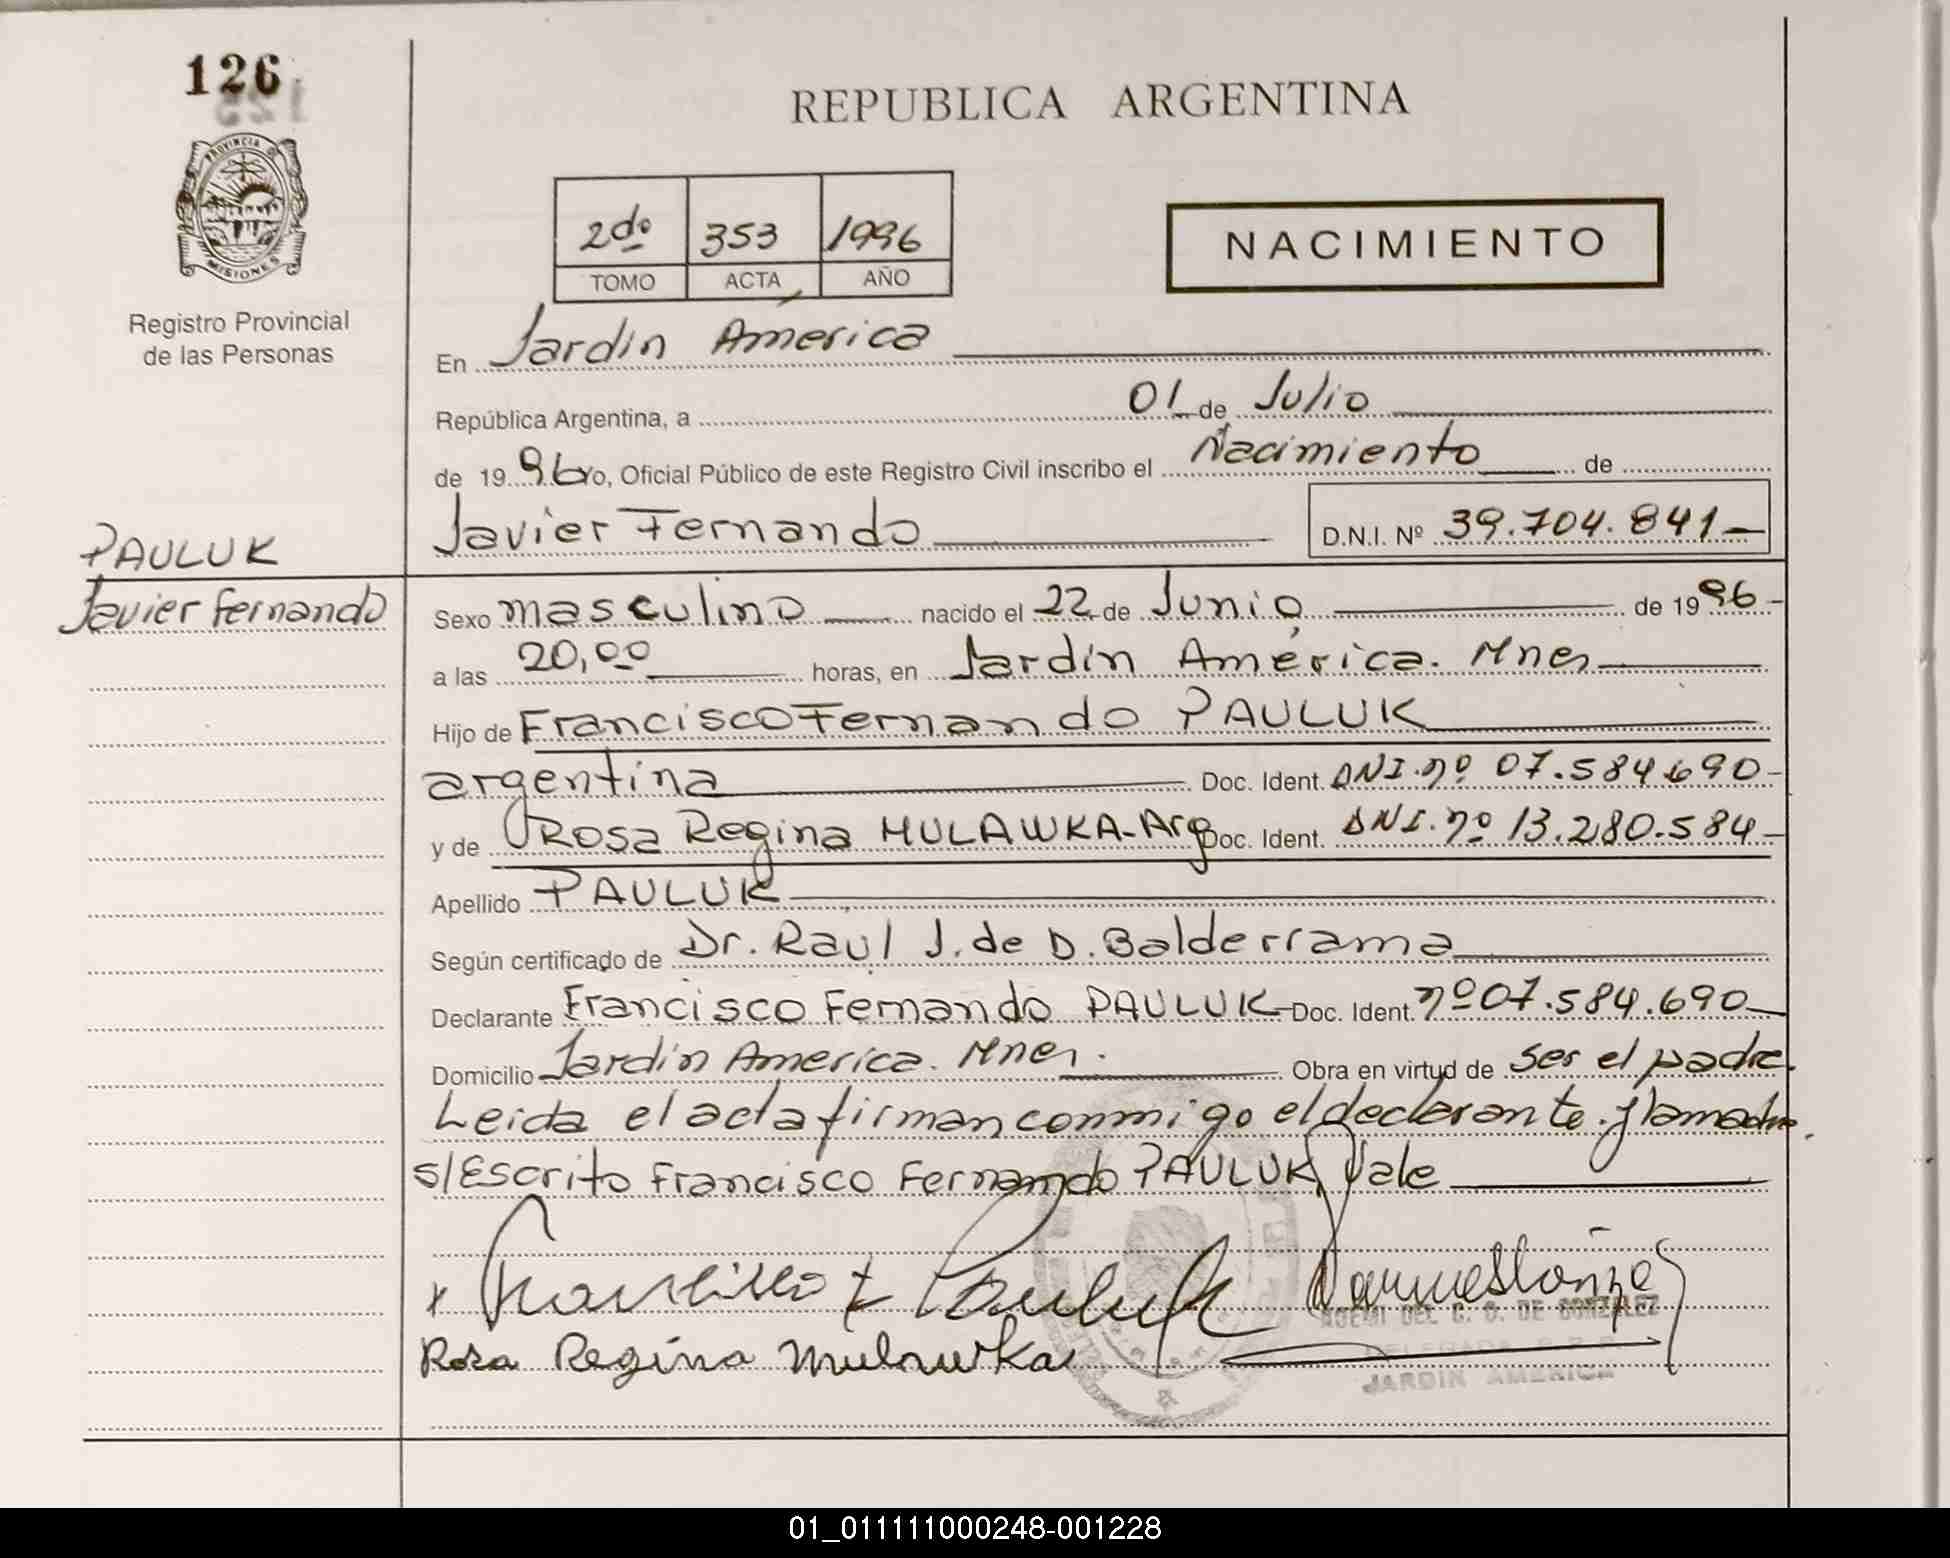 126
REPUBLICA ARGENTINA
PROVINCIA DE
MISIONES
Registro Provincial
de las Personas
2do 353 1996
TOMO ACTA AÑO
NACIMIENTO
En Jardín América
República Argentina, a 01 de Julio
de 1996 yo, Oficial Público de este Registro Civil inscribo el Nacimiento de
Javier Fernando D.N.I. Nº 39.704.841-
PAULUK
Javier Fernando
Sexo masculino nacido el 22 de Junio de 1996-
a las 20,00 horas, en Jardín América. Mnes
Hijo de Francisco Fernando PAULUK
argentina Doc. Ident. DNI. nº 07.584.690-
y de Rosa Regina MULAWKA-Arg Doc. Ident. DNI. nº 13.280.584-
Apellido PAULUK
Según certificado de Dr. Raul J. de D. Balderrama
Declarante Francisco Fernando PAULUK Doc. Ident. nº 07.584.690
Domicilio Jardín America. Mnes. Obra en virtud de ser el padre.
Leida el acta firman conmigo el declarante y la madre.
s/Escrito Francisco Fernando PAULUK Vale
Pauluk
NOEMI DEL C. D. DE GONZALEZ
JARDIN AMERICA
Rosa Regina Mulawka
01_011111000248-001228